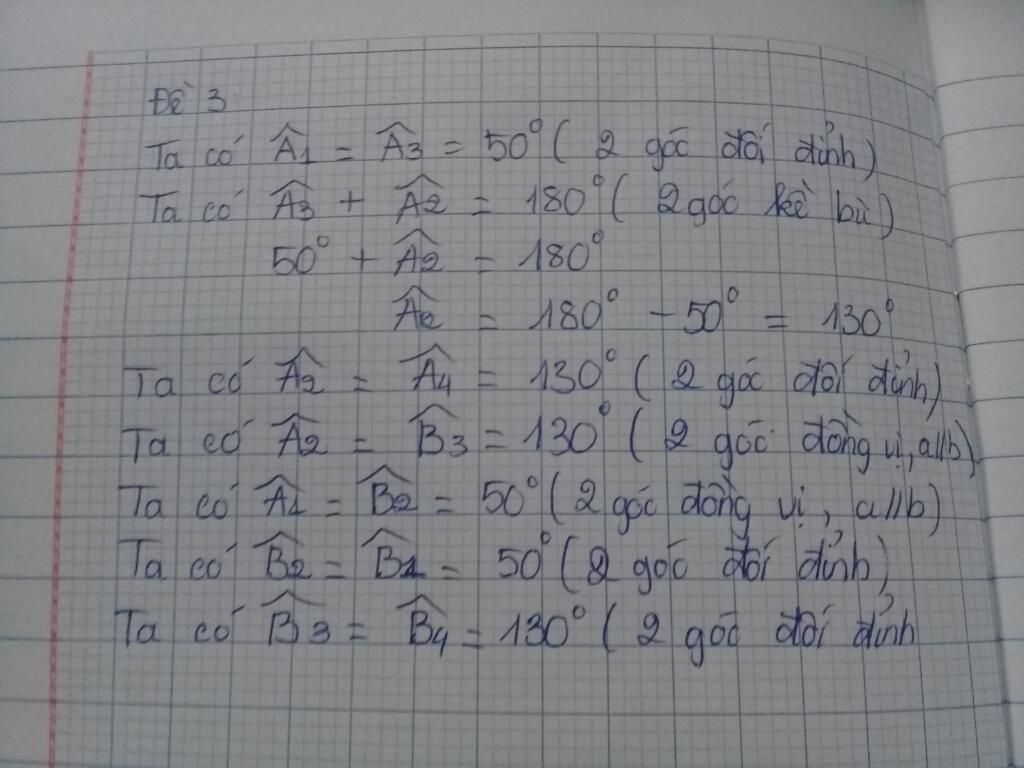 Đề 3:
Ta có Â1 = Â3 = 50° ( 2 góc đối đỉnh)
Ta có Â3 + Â2 = 180° ( 2 góc kề bù)
50° + Â2 = 180°
Â2 = 180° - 50° = 130°
Ta có Â2 = Â4 = 130° ( 2 góc đối đỉnh)
Ta có Â2 = B̂3 = 130° ( 2 góc đồng vị, a//b)
Ta có Â1 = B̂2 = 50° ( 2 góc đồng vị, a//b)
Ta có B̂2 = B̂1 = 50° ( 2 góc đối đỉnh)
Ta có B̂3 = B̂4 = 130° ( 2 góc đối đỉnh